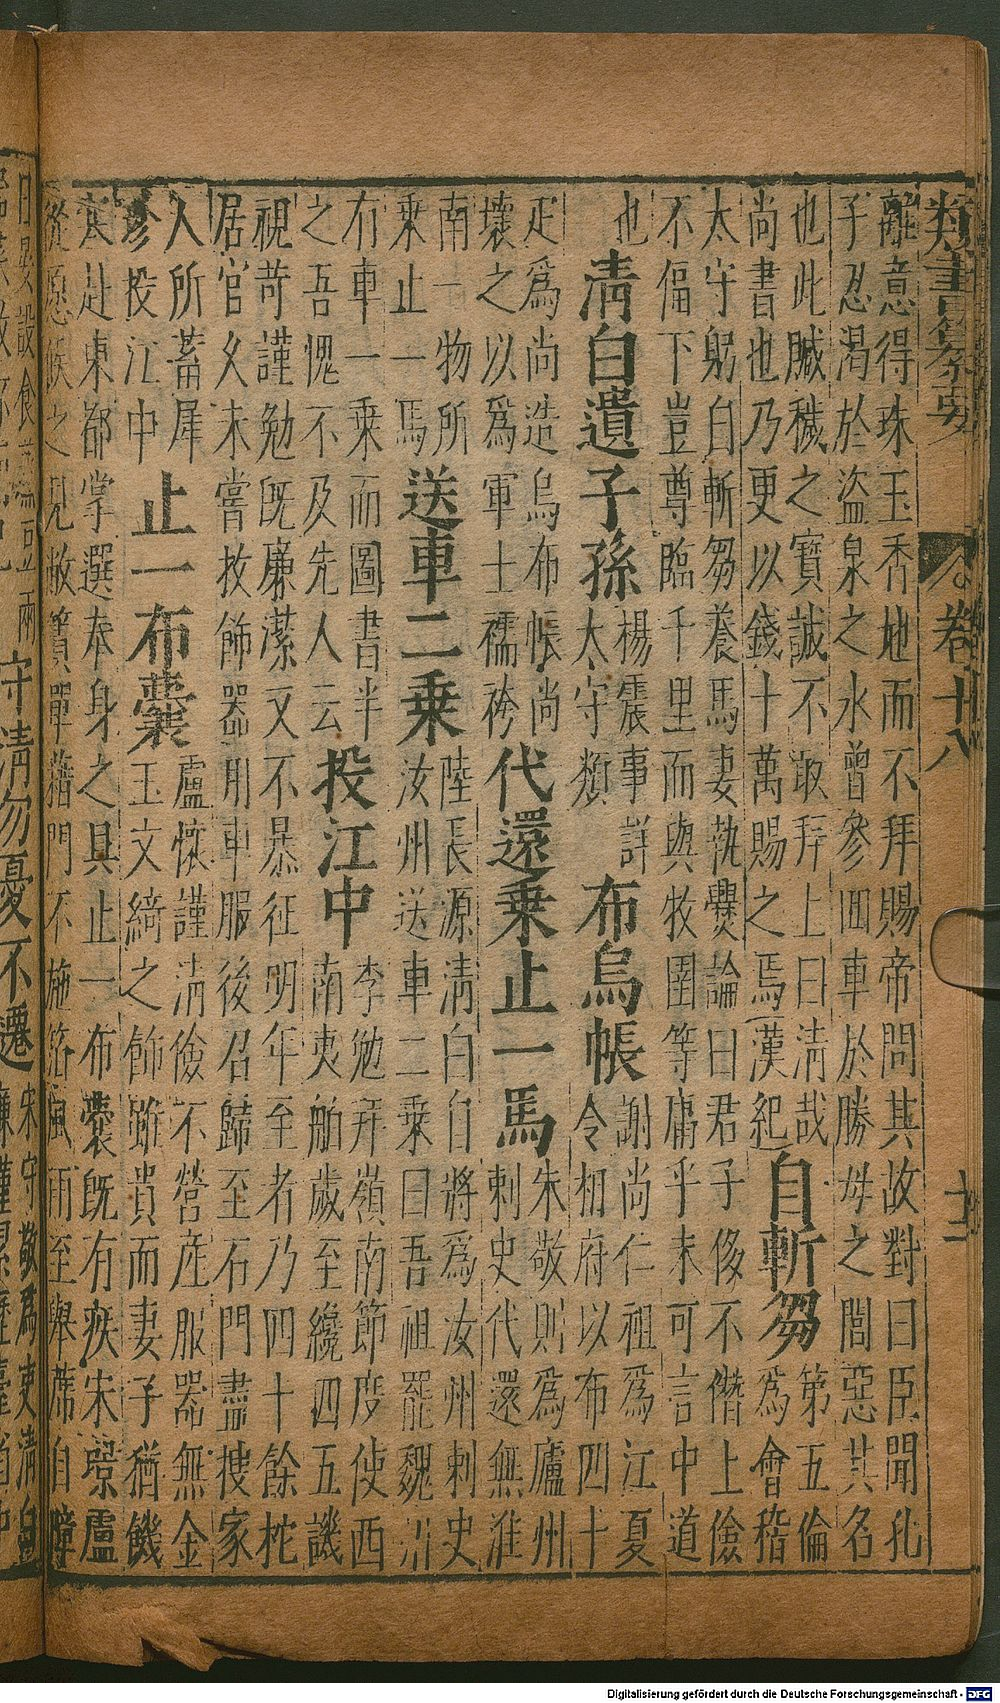 類書纂要 卷十八
離意得珠玉委地而不拜賜帝問其故對曰臣聞孔
子忍渴於盜泉之水曾參回車於勝母之閭惡其名
也此贓穢之寶誠不敢拜上曰清哉
尚書也乃更以錢十萬賜之焉漢紀
自斬芻
第五倫
為會稽
太守躬自斬芻養馬妻執爨論曰君子侈不僭上儉
不偪下豈尊臨千里而與牧圉等庸乎未可言中道
也
清白遺子孫
楊震事詳
太守類
布烏帳
謝尚仁祖為江夏
令相府以布四十
疋為尚造烏布帳尚
壞之以為軍士襦袴
代還乘止一馬
朱敬則為廬州
刺史代還無淮
南一物所
乘止一馬
送車二乘
陸長源清白自將為汝州刺史
汝州送車二乘曰吾祖罷魏州
有車一乘而圖書半
之吾愧不及先人云
投江中
李勉拜嶺南節度使西
南夷舶歲至纔四五譏
視苛謹勉既廉潔又不暴征明年至者乃四十餘柁
居官久未嘗抆飾器用車服後召歸至石門盡搜家
人所蓄犀
珍投江中
止一布囊
盧懷謹清儉不營産服器無金
玉文綺之飾雖貴而妻子猶饑
寒赴東都掌選奉身之具止一布囊既有疾宋璟盧
從愿候之見敝簀單藉門不施箔風雨至舉席自障
日晏設食蒸豆兩
守清勿憂不遷
宋守敬為吏清白
廉謹累歷臺省
Digitalisierung gefördert durch die Deutsche Forschungsgemeinschaft - DFG